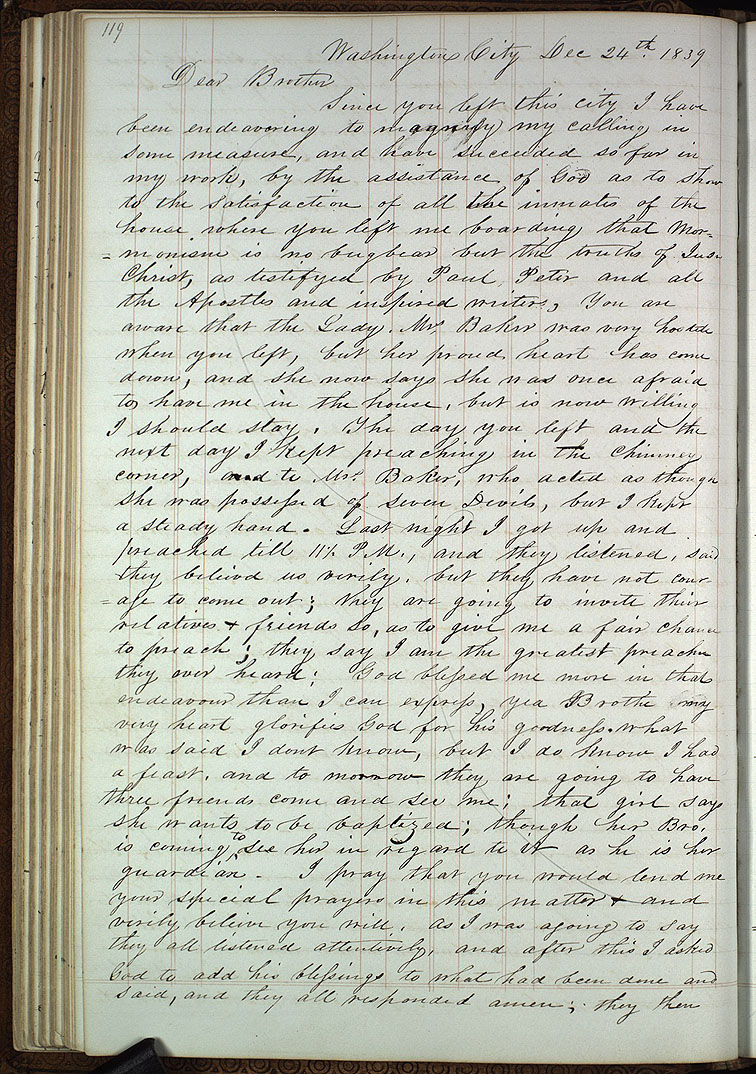 119
Washington City Dec 24th. 1839
Dear Brother
Since you left this city I have
been endeavoring to magnify my calling in
some measure, and have succeeded so far in
my work, by the assistance of God as to show
to the satisfaction of all the inmates of the
house where you left me boarding that Mor=
=monism is no bugbear but the truths of Jesu
Christ, as testifyed by Paul, Peter and all
the Apostles and inspired writers, You are
aware that the Lady. Mrs. Baker was very hostile
when you left, but her proud heart has come
down, and she now says she was once afraid
to have me in the house, but is now willing
I should stay. The day you left and the
next day I kept preaching in the chimney
corner, and to Mrs. Baker, who acted as though
she was possessed of seven Devils, but I kept
a steady hand. Last night I got up and
preached till 11½ P.M., and they listened, said
they believd us verily, but they have not cour-
=age to come out; they are going to invite their
relatives & friends so, as to give me a fair chance
to preach; they say I am the greatest preacher
they ever heard; God blessed me more in that
endeavour than I can express, yea Brother my
very heart glorifies God for his goodness. what
was said I dont know, but I do know I had
a feast, and to morrow they are going to have
three friends come and see me; that girl says
she wants to be baptized; though her Bro.
is coming to see her in regard to it as he is her
guardian. I pray that you would lend me
your special prayers in this matter & and
verily believe you will. As I was agoing to say
they all listened attentively, and after this I asked
God to add his blessings to what had been done and
said, and they all responded amen; they then